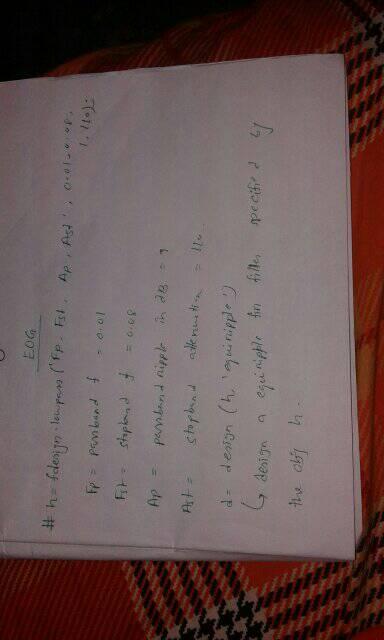 EOG
# h = fdesign.lowpass ('Fp, Fst, Ap, Ast', 0.01, 0.08,
1, 110);
Fp = passband f = 0.01
Fst = stopband f = 0.08
Ap = passband ripple in dB = 1
Ast = stopband attenuation = 110.
d = design (h, 'equiripple')
↳ design a equiripple fir filter specified by
the obj h.